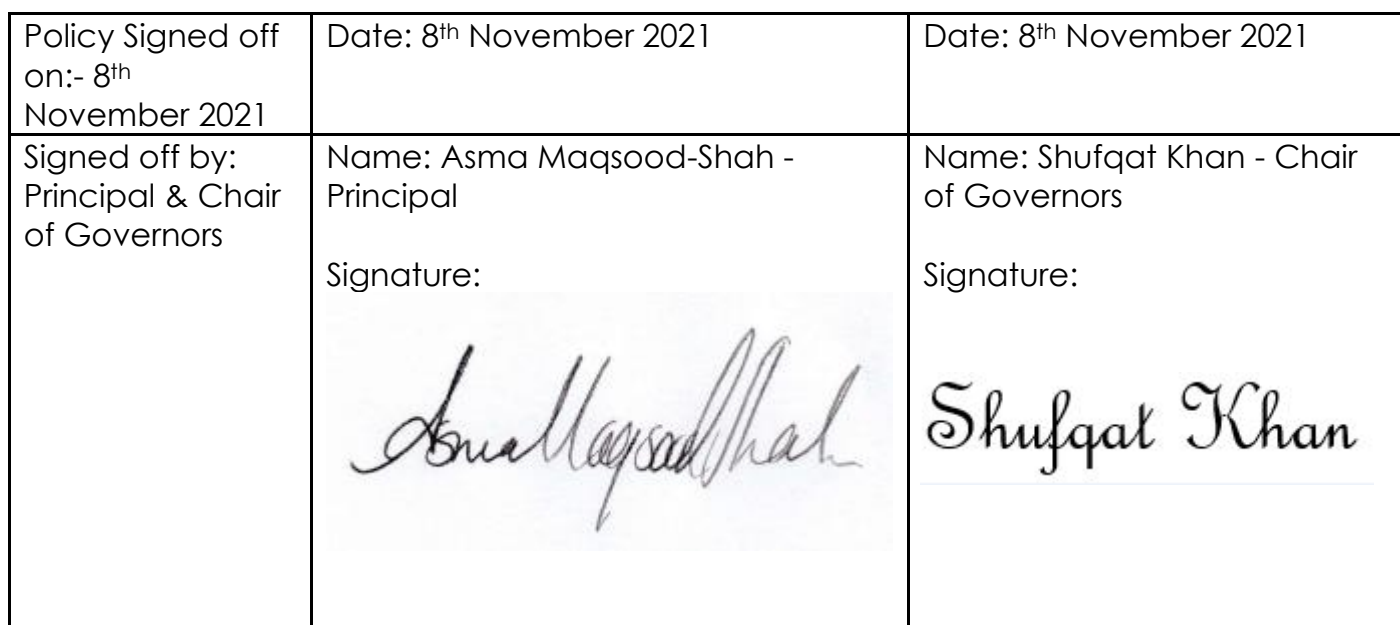 Policy Signed off
on:- 8th
November 2021
Date: 8th November 2021
Date: 8th November 2021
Signed off by:
Principal & Chair
of Governors
Name: Asma Maqsood-Shah -
Principal
Signature:
Asma Maqsood Shah
Name: Shufqat Khan - Chair
of Governors
Signature:
Shufqat Khan